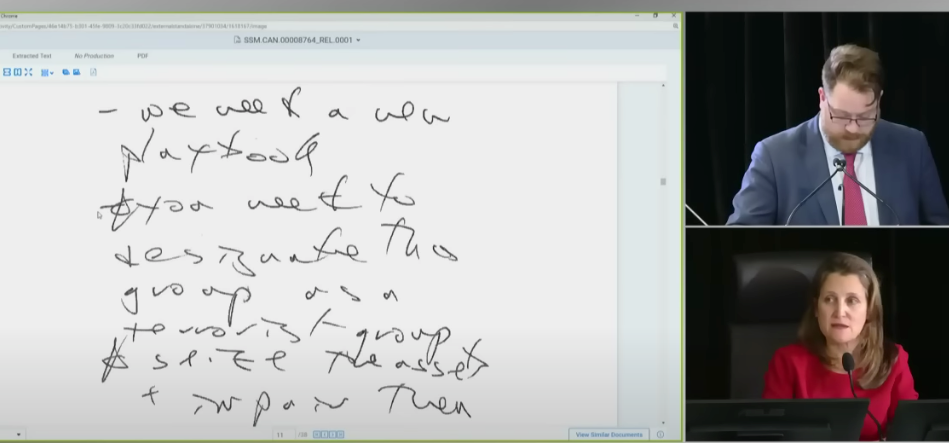 SSM.CAN.00008764_REL.0001
Extracted Text No Production PDF
- we need a new
playbook
you need to
designate the
group as a
terrorist group
seize the assets
+ impair them
11
View Similar Documents